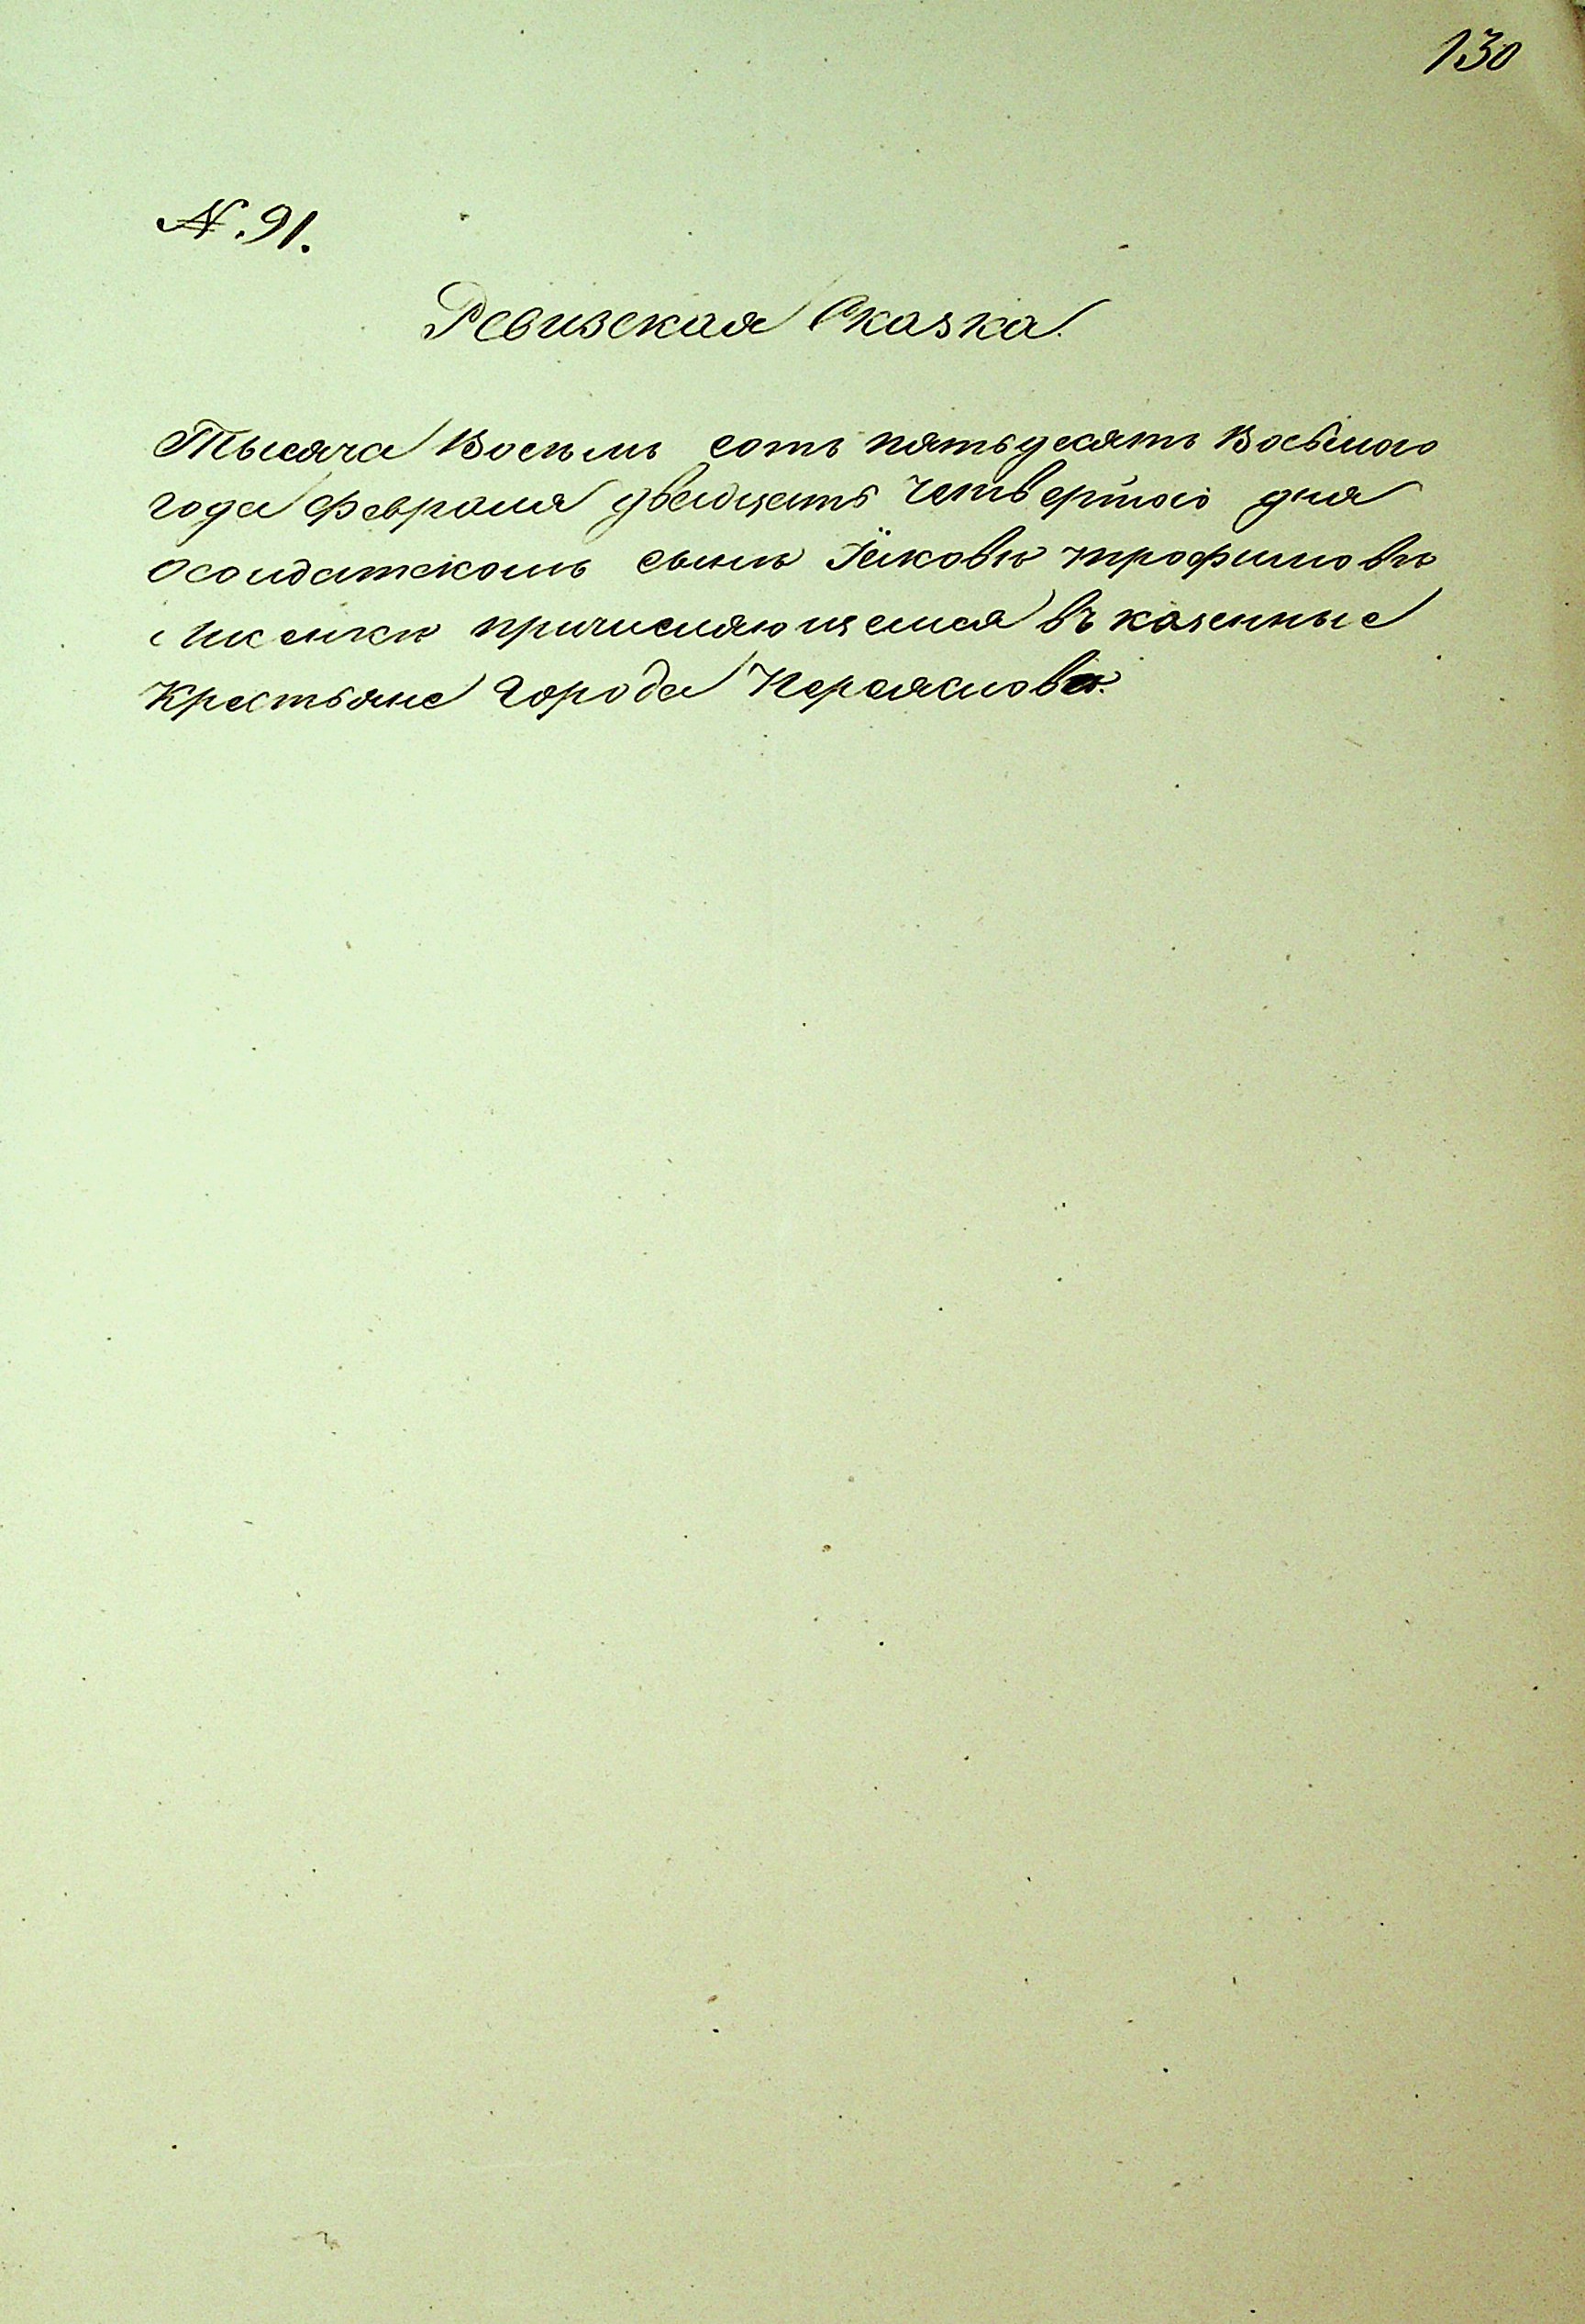 130
№.91.
Ревизская Сказка.
Тысяча Восемь сотъ пятьдесятъ Восьмого
года февраля двадцать четвертого дня
осолдатскомъ сынѣ Іяковѣ трофимовѣ
Лисенкѣ причисляющемся въ казенные
Крестьяне города Переяслова.